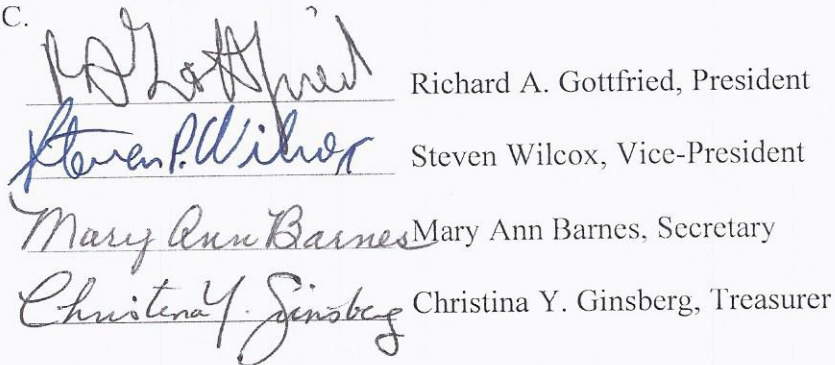 C.
RAGottfried Richard A. Gottfried, President
Steven P. Wilcox Steven Wilcox, Vice-President
Mary Ann Barnes Mary Ann Barnes, Secretary
Christina Y. Ginsberg Christina Y. Ginsberg, Treasurer